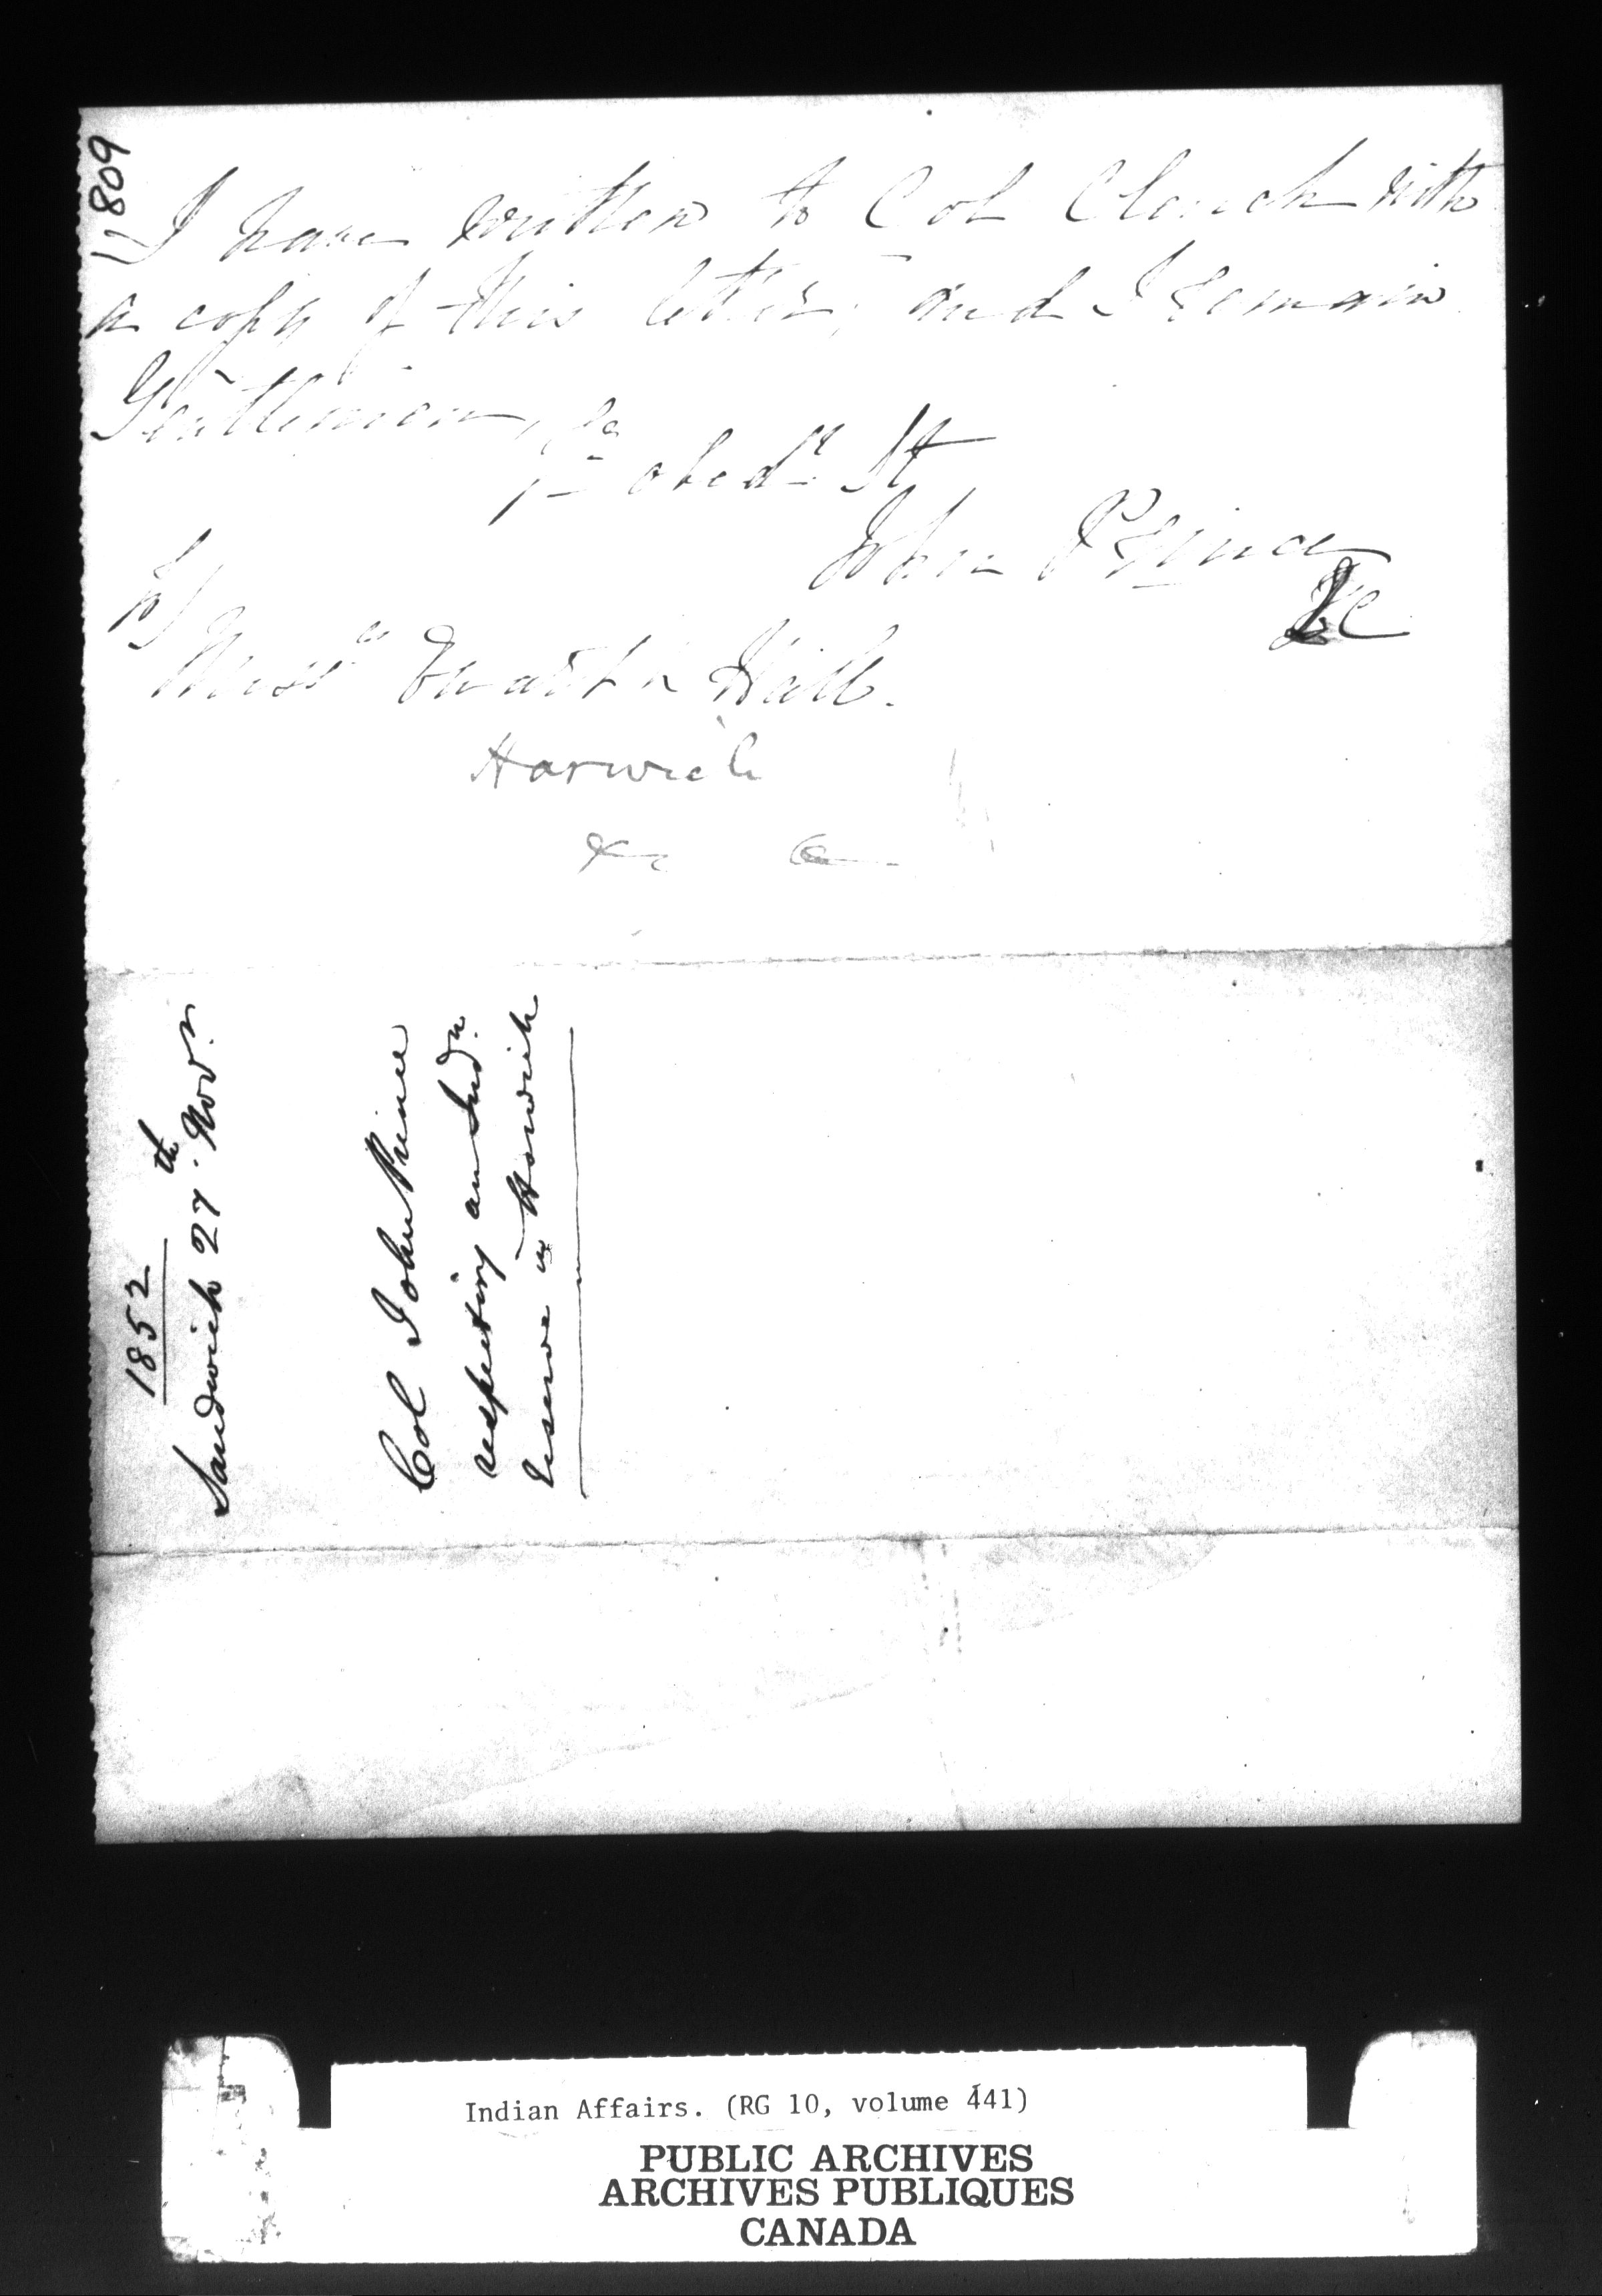 809
I have written to Col Clench with
a copy of this letter, and I remain
Gentlemen,
Yr obedt St
John Prince
QC
To
Messrs Ewart & Hall.
Harwich
&c &c
1852
Sandwich 27th Novr.
Col John Prince
respecting an Indn.
reserve in Harwich
Indian Affairs. (RG 10, volume 441)
PUBLIC ARCHIVES
ARCHIVES PUBLIQUES
CANADA